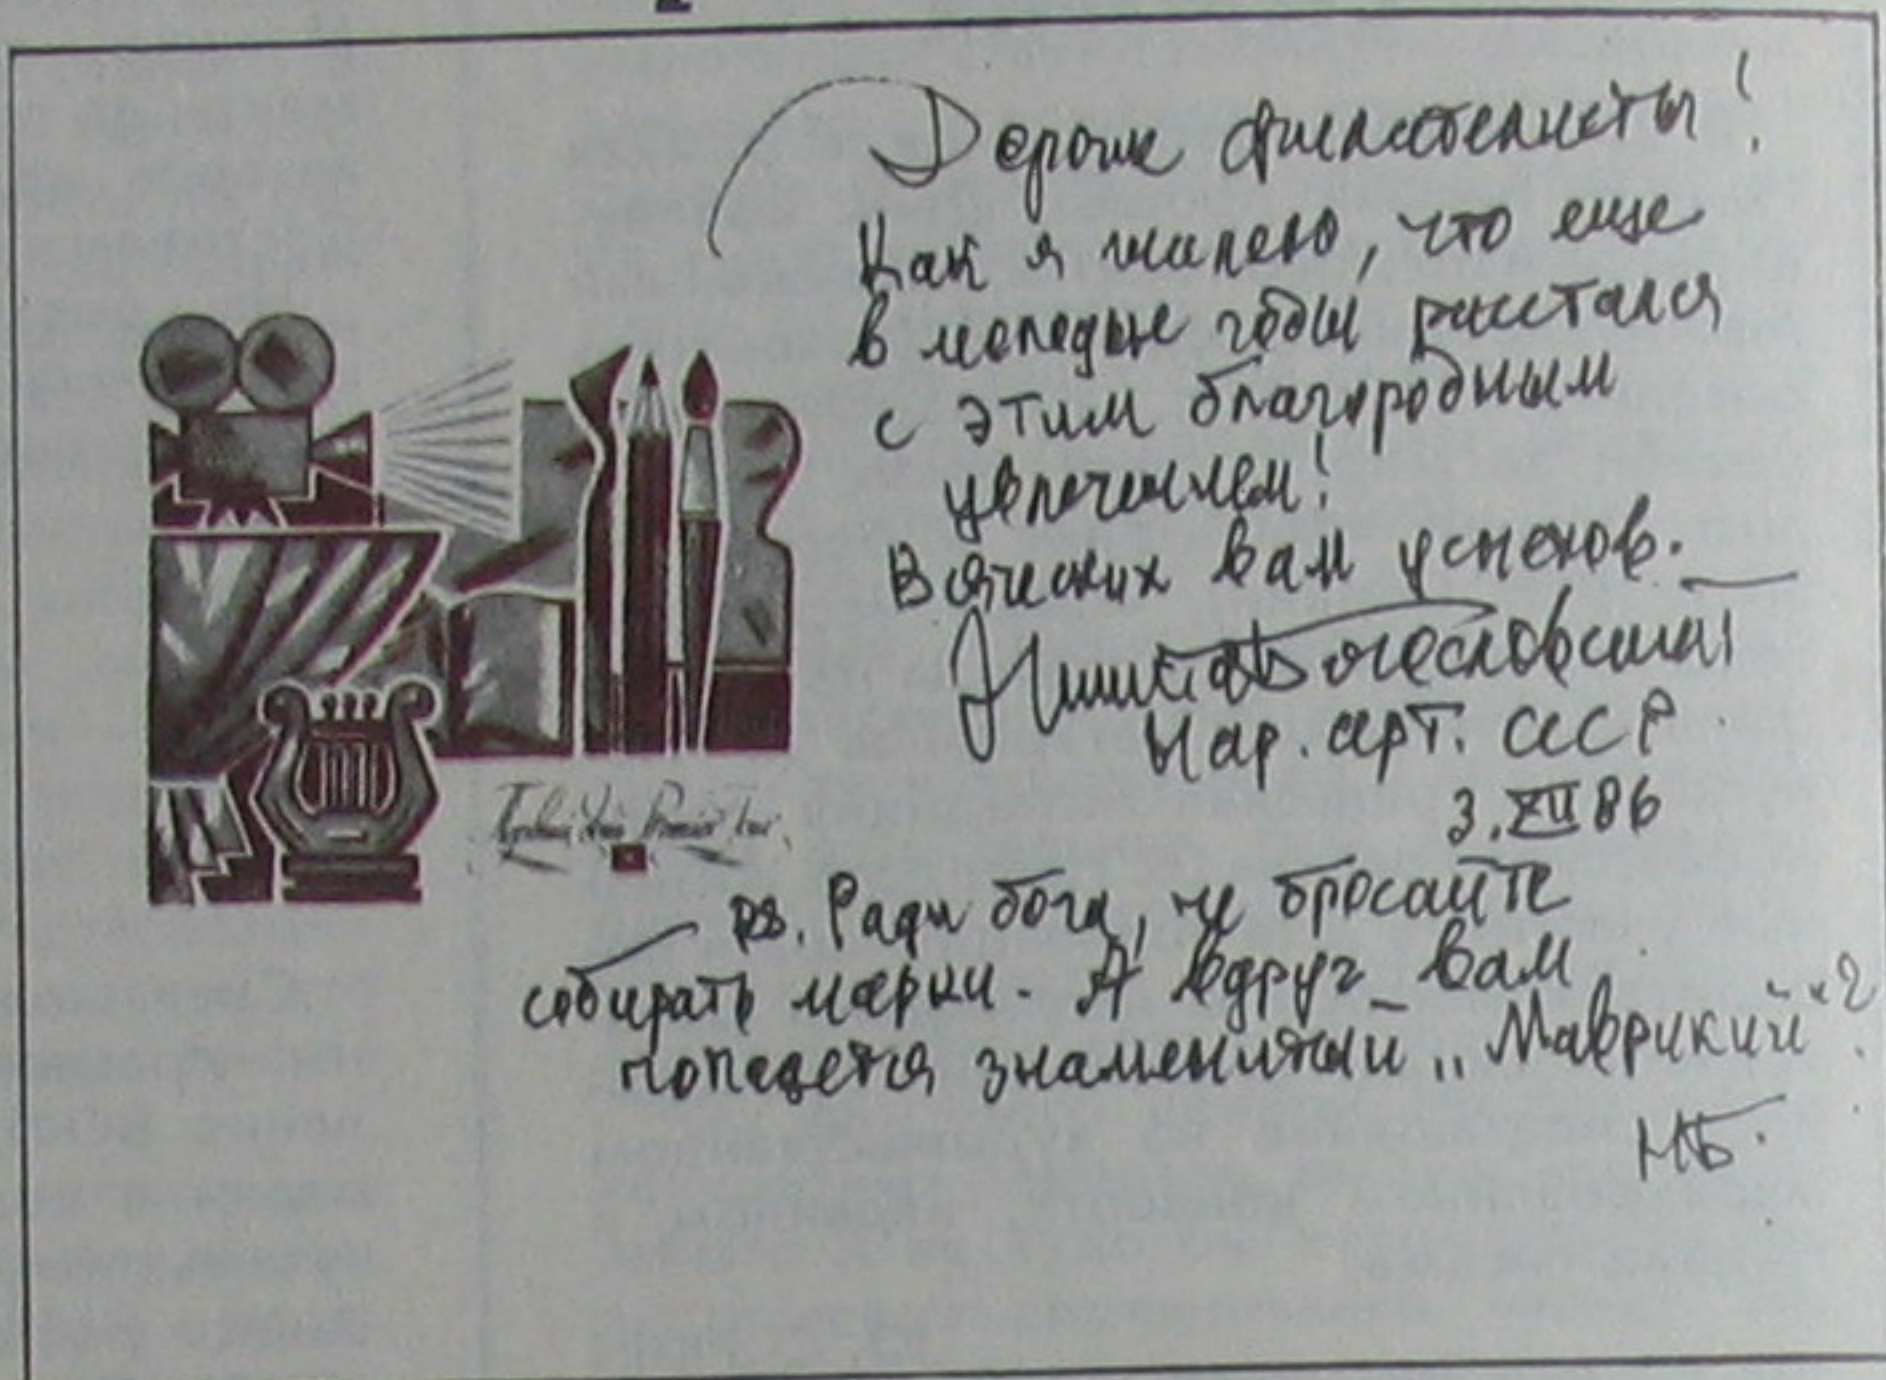 Дорогие филателисты!
Как я жалею, что еще
в молодые годы расстался
с этим благородным
увлечением!
Всяческих вам успехов.
Никита Богословский
Нар. арт. СССР
3.XII 86
PS. Ради бога, не бросайте
собирать марки. А вдруг вам
попадется знаменитый „Маврикий“?
НБ.